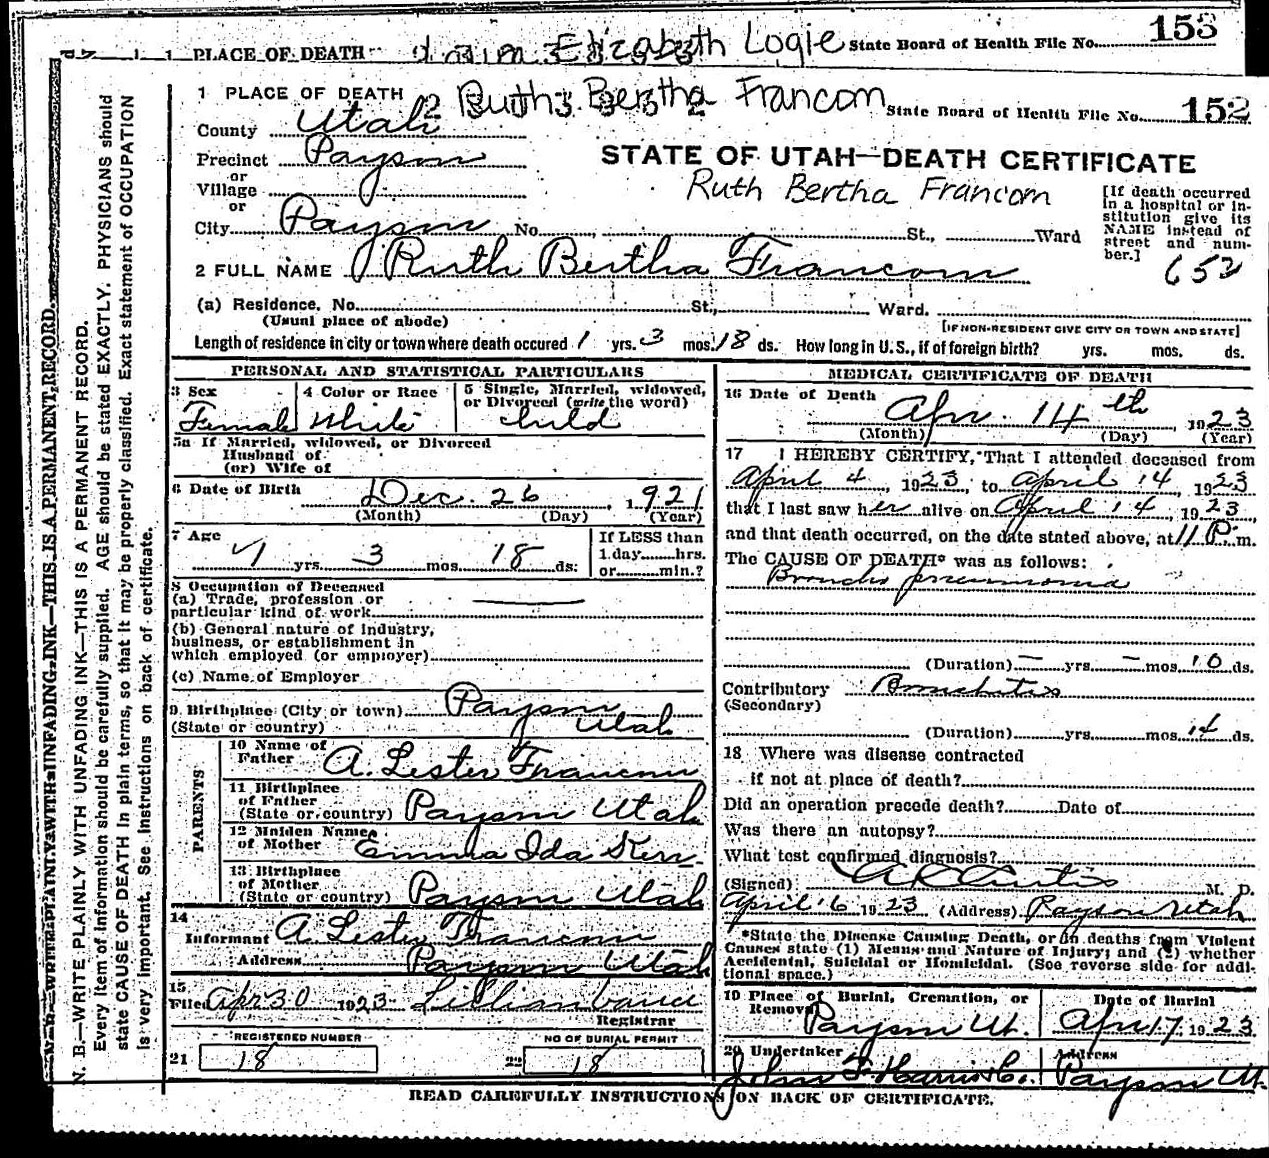 153
1 PLACE OF DEATH Elizabeth Logie State Board of Health File No.
1 PLACE OF DEATH Ruth Bertha Francom State Board of Health File No. 152
County Utah
Precinct Payson
or
Village
or
City Payson No. St., Ward
STATE OF UTAH—DEATH CERTIFICATE
Ruth Bertha Francom
[If death occurred
in a hospital or in-
stitution give its
NAME instead of
street and num-
ber.]
652
2 FULL NAME Ruth Bertha Francom
(a) Residence. No. St., Ward.
(Usual place of abode) [IF NON-RESIDENT GIVE CITY OR TOWN AND STATE]
Length of residence in city or town where death occured 1 yrs. 3 mos. 18 ds. How long in U. S., if of foreign birth? yrs. mos. ds.
PERSONAL AND STATISTICAL PARTICULARS
3 Sex
Female
4 Color or Race
White
5 Single, Married, widowed,
or Divorced (write the word)
child
5a If Married, widowed, or Divorced
Husband of
(or) Wife of
6 Date of Birth Dec. 26, 1921
(Month) (Day) (Year)
7 Age
1 yrs. 3 mos. 18 ds.
If LESS than
1 day hrs.
or min.?
8 Occupation of Deceased
(a) Trade, profession or
particular kind of work
(b) General nature of industry,
business, or establishment in
which employed (or employer)
(c) Name of Employer
9. Birthplace (City or town) Payson
(State or country) Utah
PARENTS
10 Name of
Father A. Lester Francom
11 Birthplace
of Father
(State or country) Payson Utah
12 Maiden Name
of Mother Emma Ida Kerr
13 Birthplace
of Mother
(State or country) Payson Utah
14
Informant A. Lester Francom
Address Payson Utah
15
Filed Apr 30 1923 Lillian
Registrar
REGISTERED NUMBER
21 18
NO OF BURIAL PERMIT
22 18
MEDICAL CERTIFICATE OF DEATH
16 Date of Death
Apr. 14th, 1923
(Month) (Day) (Year)
17 I HEREBY CERTIFY, That I attended deceased from
April 4, 1923, to April 14, 1923
that I last saw her alive on April 14, 1923,
and that death occurred, on the date stated above, at 11 P. m.
The CAUSE OF DEATH* was as follows:
Broncho pneumonia
(Duration) — yrs. — mos. 10 ds.
Contributory Bronchitis
(Secondary)
(Duration) yrs. mos. 14 ds.
18 Where was disease contracted
if not at place of death?
Did an operation precede death? Date of
Was there an autopsy?
What test confirmed diagnosis?
(Signed) A C Curtis M. D.
April 16 1923 (Address) Payson Utah
*State the Disease Causing Death, or in deaths from Violent
Causes state (1) Means and Nature of Injury; and (2) whether
Accidental, Suicidal or Homicidal. (See reverse side for addi-
tional space.)
19 Place of Burial, Cremation, or
Removal
Payson Ut.
Date of Burial
Apr 17, 1923
20 Undertaker
John F. Harris Co.
Address
Payson Ut.
READ CAREFULLY INSTRUCTIONS ON BACK OF CERTIFICATE.
N. B.—WRITE PLAINLY WITH UNFADING INK—THIS IS A PERMANENT RECORD.
N. B.—WRITE PLAINLY WITH UNFADING INK—THIS IS A PERMANENT RECORD.
Every item of information should be carefully supplied. AGE should be stated EXACTLY. PHYSICIANS should
state CAUSE OF DEATH in plain terms, so that it may be properly classified. Exact statement of OCCUPATION
is very important. See Instructions on back of certificate.